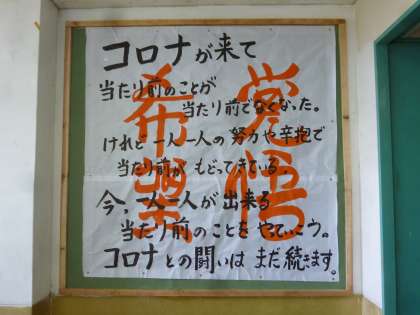 コロナが来て
当たり前のことが
当たり前でなくなった。
けれど一人一人の努力や辛抱で
当たり前がもどってきている。
今，一人一人が出来る
当たり前のことをやっていこう。
コロナとの闘いはまだ続きます。
覚悟
希望